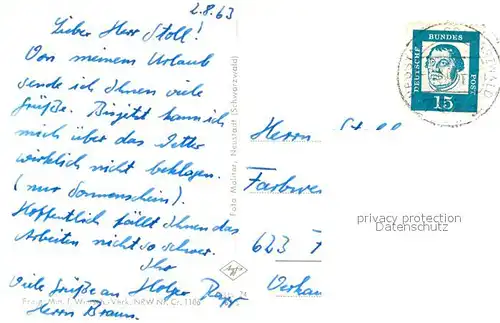 2.8.63
Lieber Herr Stoll!
Von meinem Urlaub
sende ich Ihnen viele
Grüße. Birgitet kann ich
mich über das Wetter
wirklich nicht beklagen.
(nur Sonnenschein).
Hoffentlich fällt Ihnen das
Arbeiten nicht so schwer.
Ihr
Holger
Viele Grüße an
Herrn Braun.
Foto Maliter, Neustadt (Schwarzwald)
Agfa
DEUTSCHE
BUNDES
POST
15
Herrn Stoll
Farbwer
623
Verkau
privacy protection
Datenschutz